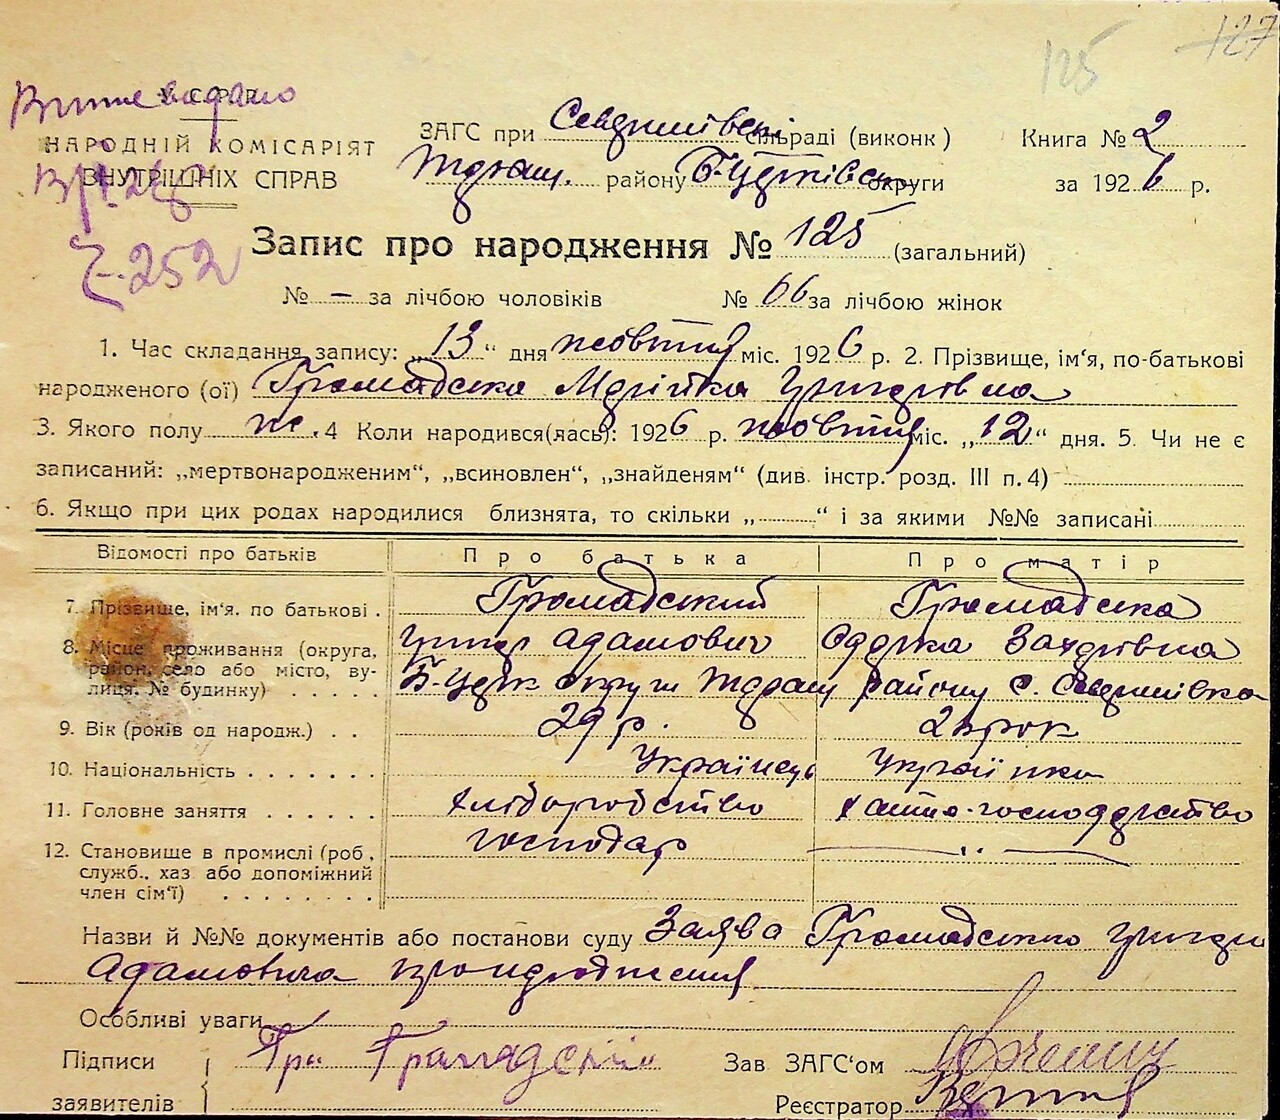 125 127
У.С.Р.Р.
НАРОДНІЙ КОМІСАРІЯТ
ВНУТРІШНІХ СПРАВ
ч. 252
ЗАГС при сільраді (виконк)
району Б-Церківської округи
Книга № 2
за 1926 р.
Запис про народження № 125 (загальний)
№ — за лічбою чоловіків № 66 за лічбою жінок
1. Час складання запису: „13“ дня жовтня міс. 1926 р. 2. Прізвище, ім'я, по-батькові
народженого (ої) Громадська Марійка Григорівна
3. Якого полу ж. 4 Коли народився(лась): 1926 р. жовтня міс. „12“ дня. 5. Чи не є
записаний: „мертвонародженим“, „всиновлен“, „знайденям“ (див. інстр. розд. III п. 4)
6. Якщо при цих родах народилися близнята, то скільки „ “ і за якими №№ записані
Відомості про батьків Про батька Про матір
7. Прізвище, ім'я. по батькові . Громадський Громадська
8. Місце проживання (округа, Адамович Захарівна
район, село або місто, ву- Б-Церк округи району с.
лиця, № будинку) . . . . .
9. Вік (років од народж.) . . 29 р. рок
10. Національність . . . . . . . Українець Українка
11. Головне заняття . . . . . . хліборобство хатнє-господарство
12. Становище в промислі (роб., господар —〃—
служб., хаз або допоміжний
член сім'ї) . . . . . . . .
Назви й №№ документів або постанови суду Заява Громадського
Адамовича про народження
Особливі уваги
Підписи Гри Громадський Зав ЗАГС'ом
заявителів Реєстратор